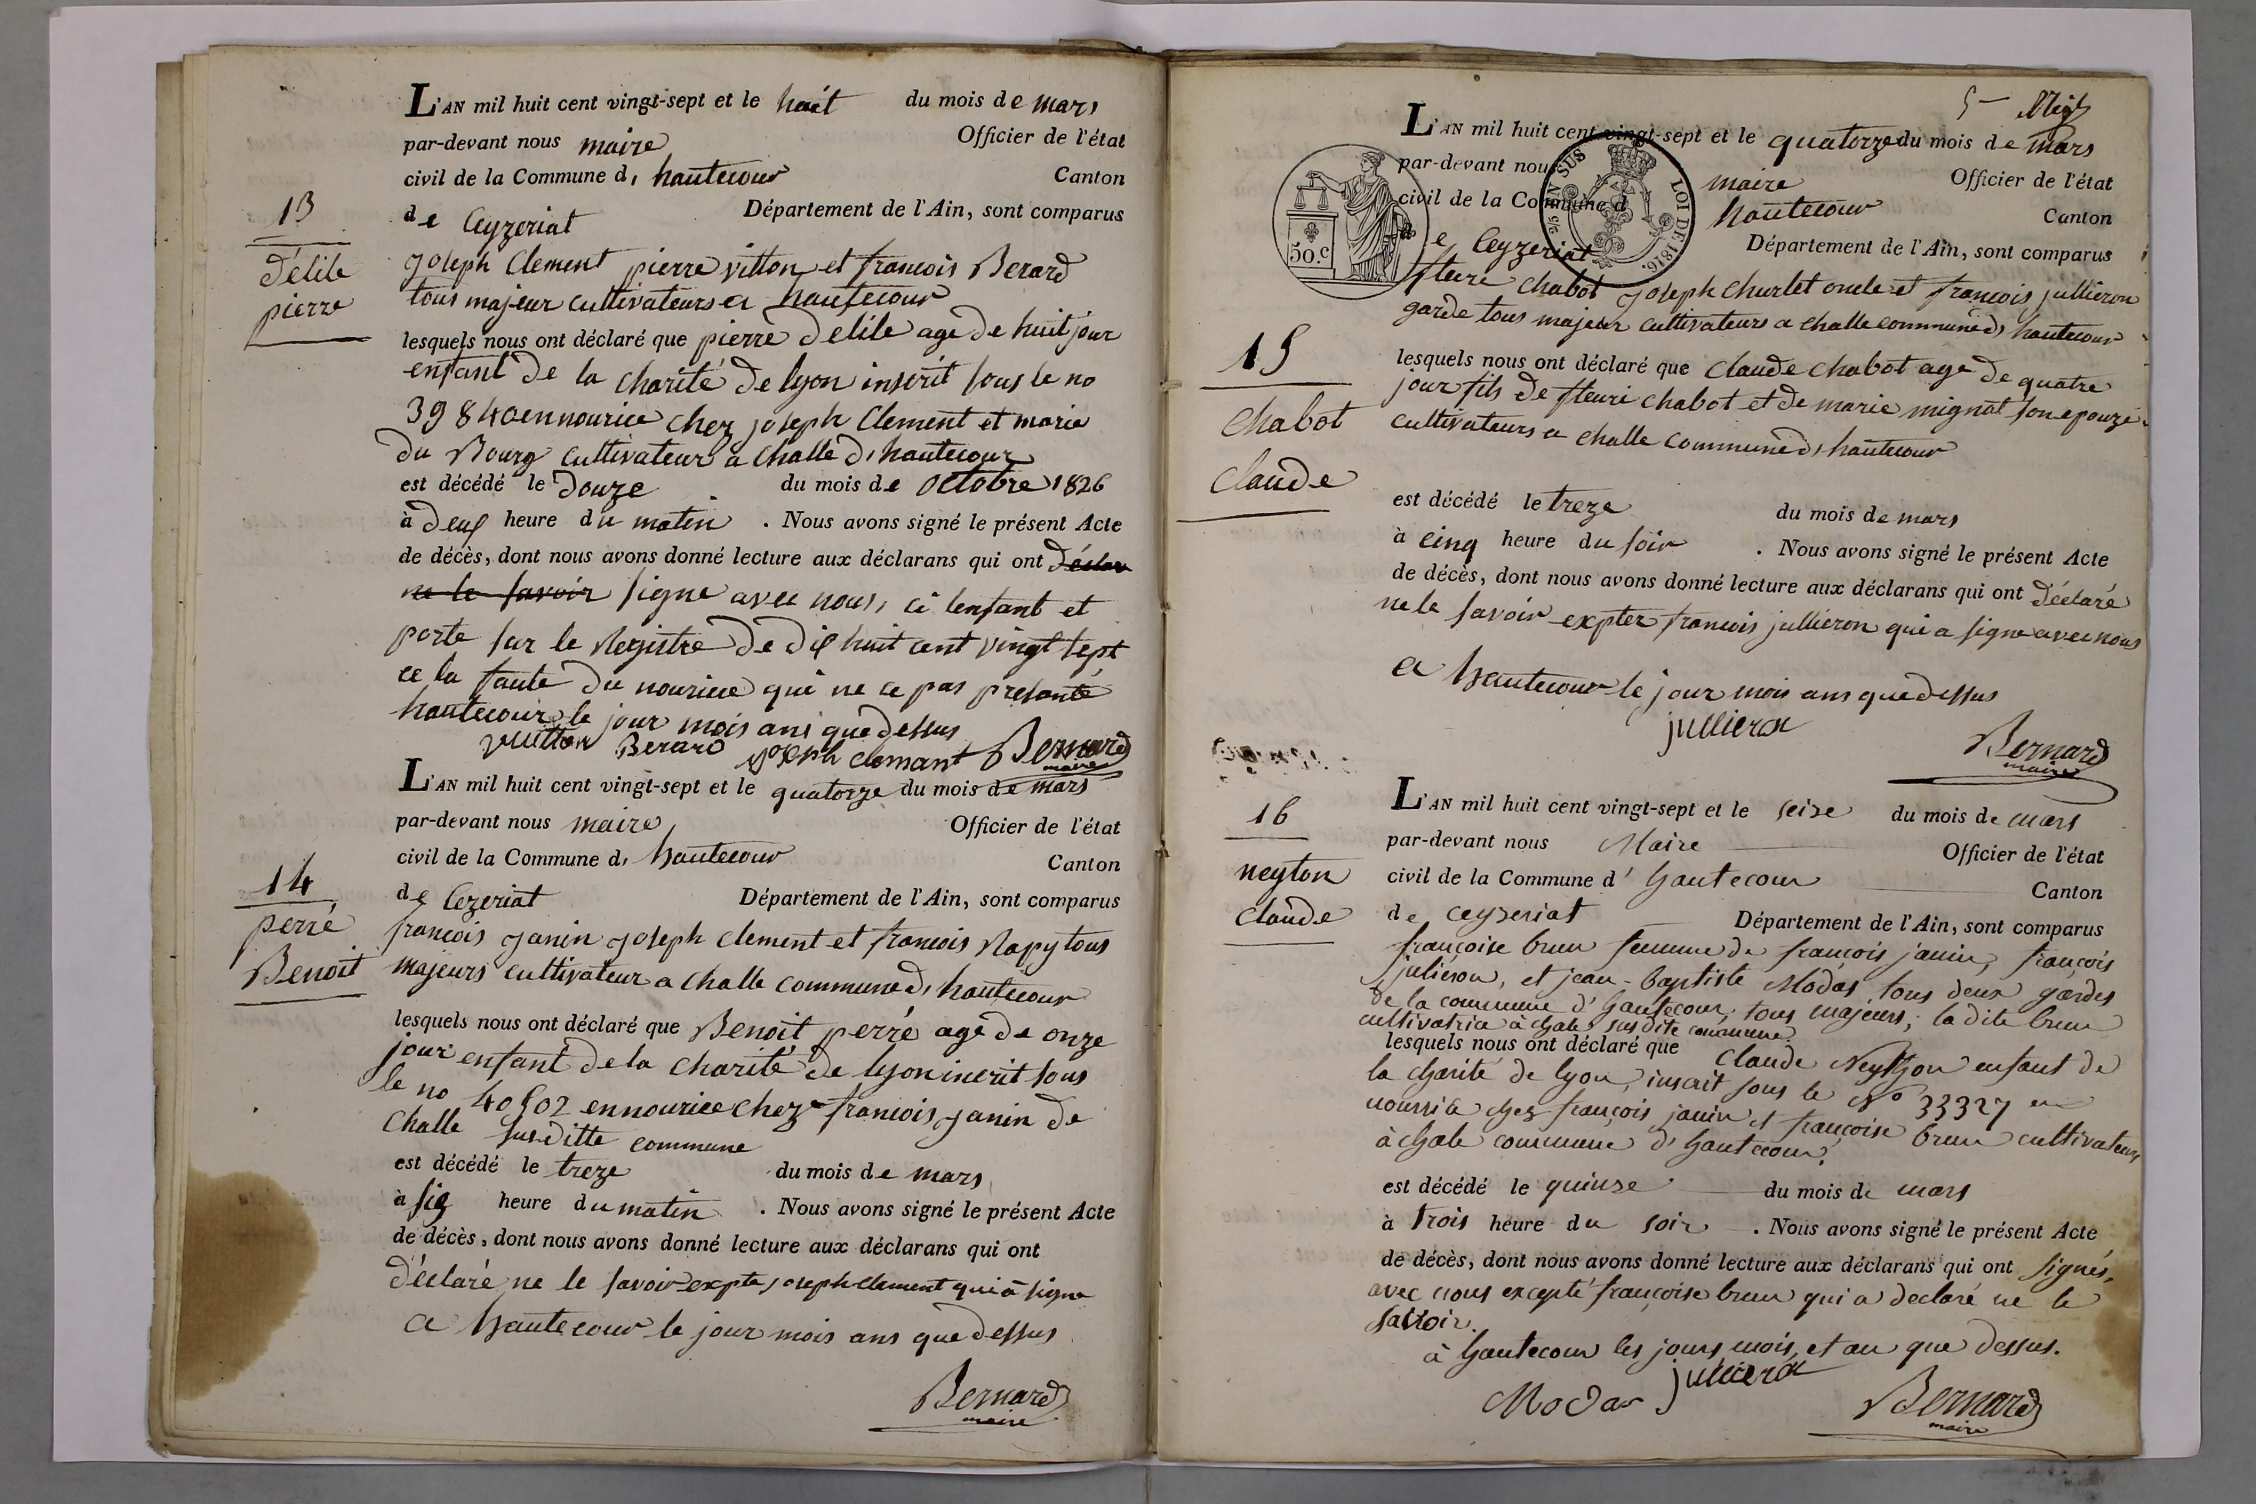 L'AN mil huit cent vingt-sept et le huit du mois de mars
par-devant nous maire Officier de l'état
civil de la Commune d, hautecour Canton
de Ceyzeriat Département de l'Ain, sont comparus
13
délile
pierre
joseph Clement pierre vitton et francois Berard
tous majeur cultivateurs a hautecour
lesquels nous ont déclaré que pierre delile age de huit jour
enfant de la charité de lyon inscrit sous le no
39840 en nourice chez joseph Clement et marie
du Bourg cultivateur a challe d, hautecour
est décédé le douze du mois de octobre 1826
à deux heure du matin . Nous avons signé le présent Acte
de décès, dont nous avons donné lecture aux déclarans qui ont déclar
ne le savoir signe avec nous, ci lenfant et
porte sur le Registre de dix huit cent vingt sept
ce la faute du nourice qui ne ce pas presanté
hautecour le jour mois ans que dessus
vuitton Berard joseph clemant Bernard
maire
L'AN mil huit cent vingt-sept et le quatorze du mois de mars
par-devant nous maire Officier de l'état
civil de la Commune d, hautecour Canton
de Cezeriat Département de l'Ain, sont comparus
14
perré
Benoit
francois janin joseph clement et francois Rapy tous
majeurs cultivateur a challe commune d, hautecour
lesquels nous ont déclaré que Benoit perré age de onze
jour enfant de la charité de lyon incrit sous
le no 40502 en nourice chez francois janin de
Challe susditte commune
est décédé le treze du mois de mars
à six heure du matin . Nous avons signé le présent Acte
de décès, dont nous avons donné lecture aux déclarans qui ont
déclaré ne le savoir expte joseph clement qui à signe
a hautecour le jour mois ans que dessus
Bernard
maire
5
L'AN mil huit cent vingt-sept et le quatorze du mois de mars
par-devant nous maire Officier de l'état
civil de la Commune d hautecour Canton
de Ceyzeriat Département de l'Ain, sont comparus
50.c
EN SUS
LOI DE 1816.
15
Chabot
Claude
fleuri chabot joseph churlet oncle et francois jullieron
garde tous majeur cultivateurs a challe commune d, hautecour
lesquels nous ont déclaré que Claude chabot age de quatre
jour fils de fleuri chabot et de marie mignat son epouze
cultivateurs a challe commune d, hautecour
est décédé le treze du mois de mars
à cinq heure du soir . Nous avons signé le présent Acte
de décès, dont nous avons donné lecture aux déclarans qui ont déclaré
ne le savoir expter francois jullieron qui a signe avec nous
a hautecour le jour mois ans que dessus
Bernard
maire
L'AN mil huit cent vingt-sept et le seize du mois de mars
par-devant nous Maire Officier de l'état
civil de la Commune d' hautecour Canton
de ceyzeriat Département de l'Ain, sont comparus
16
neyton
claude
françoise brun femme de francois janin, françois
juliéron, et jean-Baptiste Modas tous deux gardes
de la commune d'hautecour, tous majeurs, la dite brun
cultivatrice à chale susdite commune
lesquels nous ont déclaré que Claude Neython enfant de
la charité de lyon, inscrit sous le No 33327 en
nourrice chez françois janin et françoise brun cultivateurs
à chale commune d'hautecour.
est décédé le quinze du mois de mars
à trois heure du soir . Nous avons signé le présent Acte
de décès, dont nous avons donné lecture aux déclarans qui ont signés,
avec nous excepté françoise brun qui a declaré ne le
savoir.
à hautecour les jours mois, et an que dessus.
Modas Bernard
maire